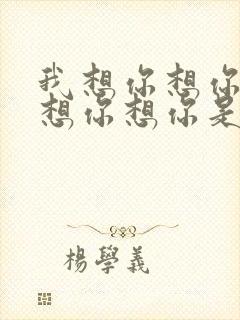 我想你想你
想你想你是
楊學義